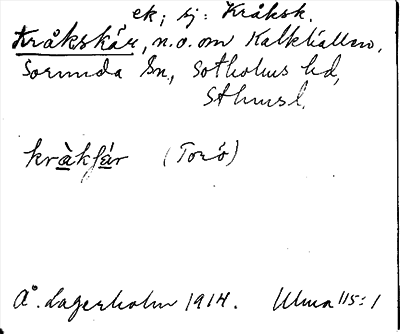 ek; sj: Kråksk.
Kråkskär, n.o. om Kalkhällen,
Sorunda Sn, Sotholms hd,
Sthmsl.
kràkfár (Torö)
Å. Lagerholm 1914. Ulma 115:1